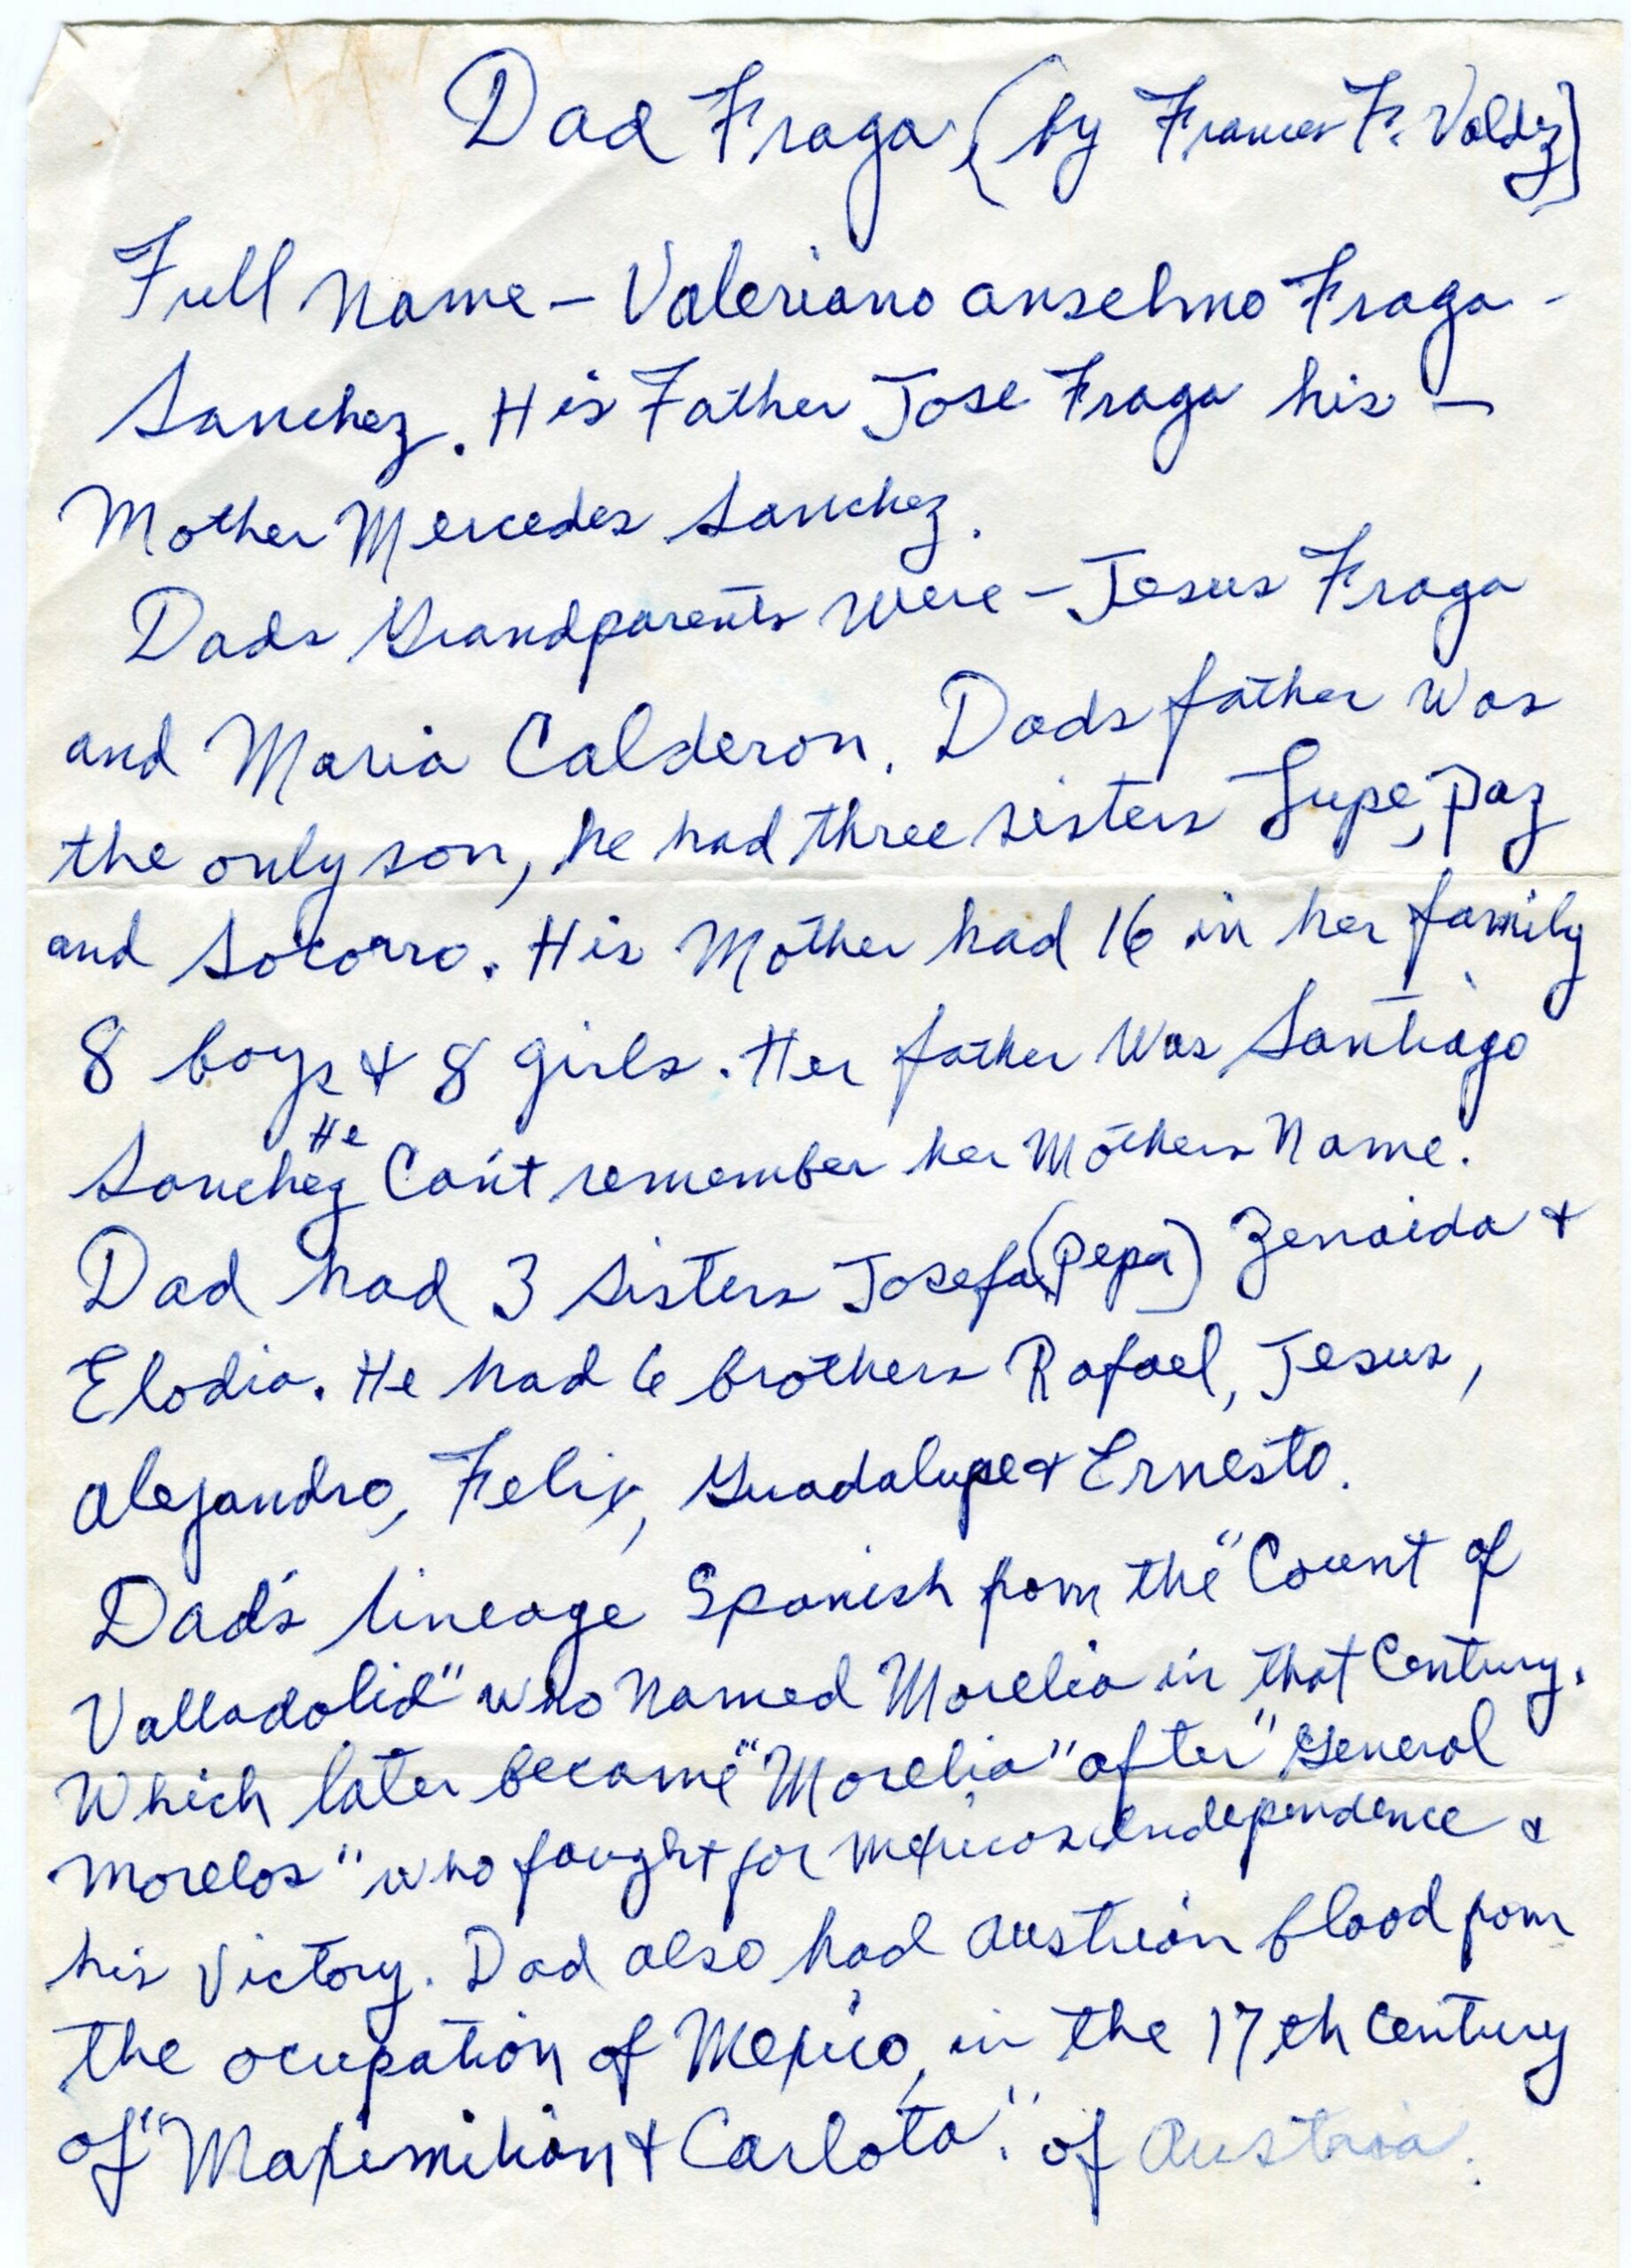 Dad Fraga (by Frances F. Valdez)
Full Name – Valeriano Anselmo Fraga -
Sanchez. His Father Jose Fraga his –
Mother Mercedes Sanchez.
Dads Grandparents were – Jesus Fraga
and Maria Calderon. Dads father was
the only son, he had three sisters Lupe, Paz
and Socorro. His Mother had 16 in her family
8 boys & 8 girls. Her father was Santiago
Sanchez He Can't remember her Mothers Name.
Dad had 3 sisters Josefa (Pepa) Zenaida &
Elodia. He had 6 brothers Rafael, Jesus,
Alejandro, Felix, Guadalupe & Ernesto.
Dad's lineage Spanish from the "Count of
Valladolid" who named Morelia in that Century.
Which later became "Morelia" after "General
Morelos" who fought for Mexicos independence &
his victory. Dad also had Austrian blood from
the ocupation of Mexico, in the 17th Century
of "Maximilian & Carlota." of Austria.